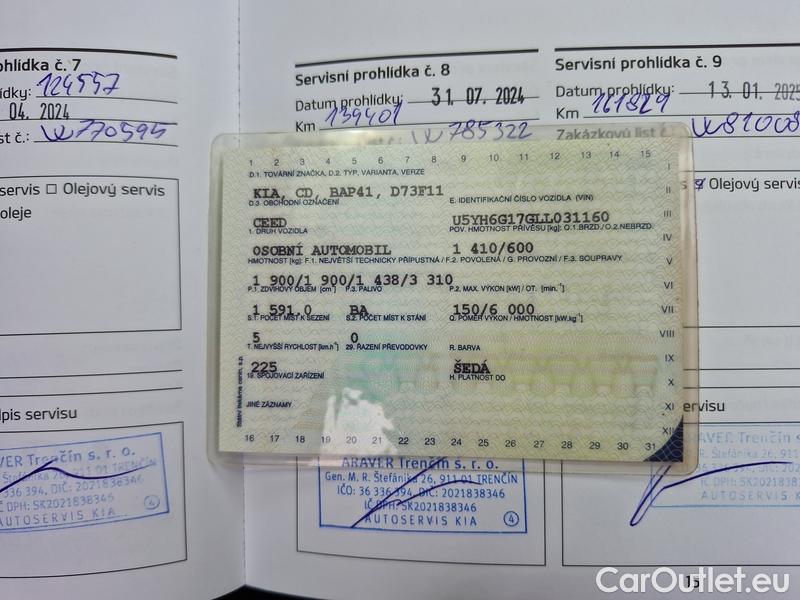 ohlídka č. 7
ídky: 124557
04. 2024
st č.: W770595
ervis □ Olejový servis
oleje
dpis servisu
AVER Trenčín s. r. o.
Štefánika 26, 911 01 TRENČÍN
36 336 394, DIČ: 2021838346
IČ DPH: SK2021838346
AUTOSERVIS KIA
4
Servisní prohlídka č. 8
Datum prohlídky: 31. 07. 2024
Km 139401
W785322
1 2 3 4 5 6 7 8 9 10 11 12 13 14 15
D.1. TOVÁRNÍ ZNAČKA, D.2. TYP, VARIANTA, VERZE
I
KIA, CD, BAP41, D73F11
II
D.3. OBCHODNÍ OZNAČENÍ
E. IDENTIFIKAČNÍ ČÍSLO VOZIDLA (VIN)
CEED
U5YH6G17GLL031160
III
1. DRUH VOZIDLA
POV. HMOTNOST PŘÍVĚSU [kg]: O.1.BRZD./O.2.NEBRZD.
IV
OSOBNÍ AUTOMOBIL
1 410/600
V
HMOTNOST [kg]: F.1. NEJVĚTŠÍ TECHNICKY PŘÍPUSTNÁ / F.2. POVOLENÁ / G. PROVOZNÍ / F.3. SOUPRAVY
1 900/1 900/1 438/3 310
VI
P.1. ZDVIHOVÝ OBJEM [cm³]
P.3. PALIVO
P.2. MAX. VÝKON [kW] / OT. [min.⁻¹]
1 591.0
BA
150/6 000
VII
S.1. POČET MÍST K SEZENÍ
S.2. POČET MÍST K STÁNÍ
Q. POMĚR VÝKON / HMOTNOST [kW.kg⁻¹]
5
0
VIII
T. NEJVYŠŠÍ RYCHLOST [km.h⁻¹]
29. ŘAZENÍ PŘEVODOVKY
R. BARVA
IX
225
ŠEDÁ
19. SPOJOVACÍ ZAŘÍZENÍ
H. PLATNOST DO
X
JINÉ ZÁZNAMY
XI
XII
16 17 18 19 20 21 22 23 24 25 26 27 28 29 30 31
Státní tiskárna cenin, s.p.
ARAVER Trenčín s. r. o.
Gen. M. R. Štefánika 26, 911 01 TRENČÍN
IČO: 36 336 394, DIČ: 2021838346
IČ DPH: SK2021838346
AUTOSERVIS KIA
4
Servisní prohlídka č. 9
Datum prohlídky: 13. 01. 2025
Km 161829
Zakázkový list č. W81008
Olejový servis
ervisu
Štefánika 26, 911 01 TRENČÍN
394, DIČ: 2021838346
SK2021838346
AUTOSERVIS KIA
15
CarOutlet.eu